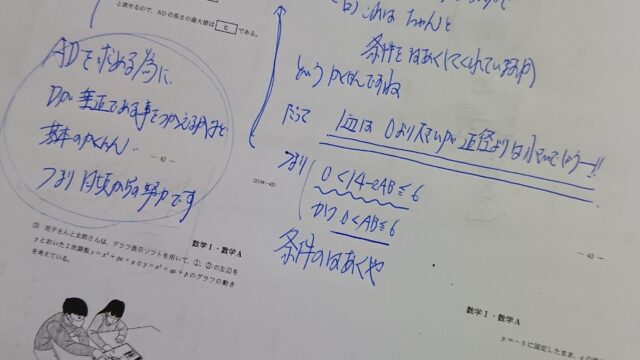 と表せるので、ADの長さの最大値は ヒ である。
ADを求める為に
基本のかくにん..
つまり日頃からの努力です
- 42 -
(2104-42)
数学Ⅰ・数学A
③ 花子さんと太郎さんは、グラフ表示ソフトを用いて、①、②の左辺を
yとおいた2次関数 y=x²+px+q と y=x²+qx+p のグラフの動き
を考えている。
これは ちゃんと
条件をはあくしてくれているか
というかくにんですね
だって 1辺は 0より大きいが 直径よりは小さいでしょう!!
つまり
0<14-2AB≦6
かつ 0<AB≦6
条件のはあくや
- 43 -
数学Ⅰ・数学A
p=-6に固定したまま、